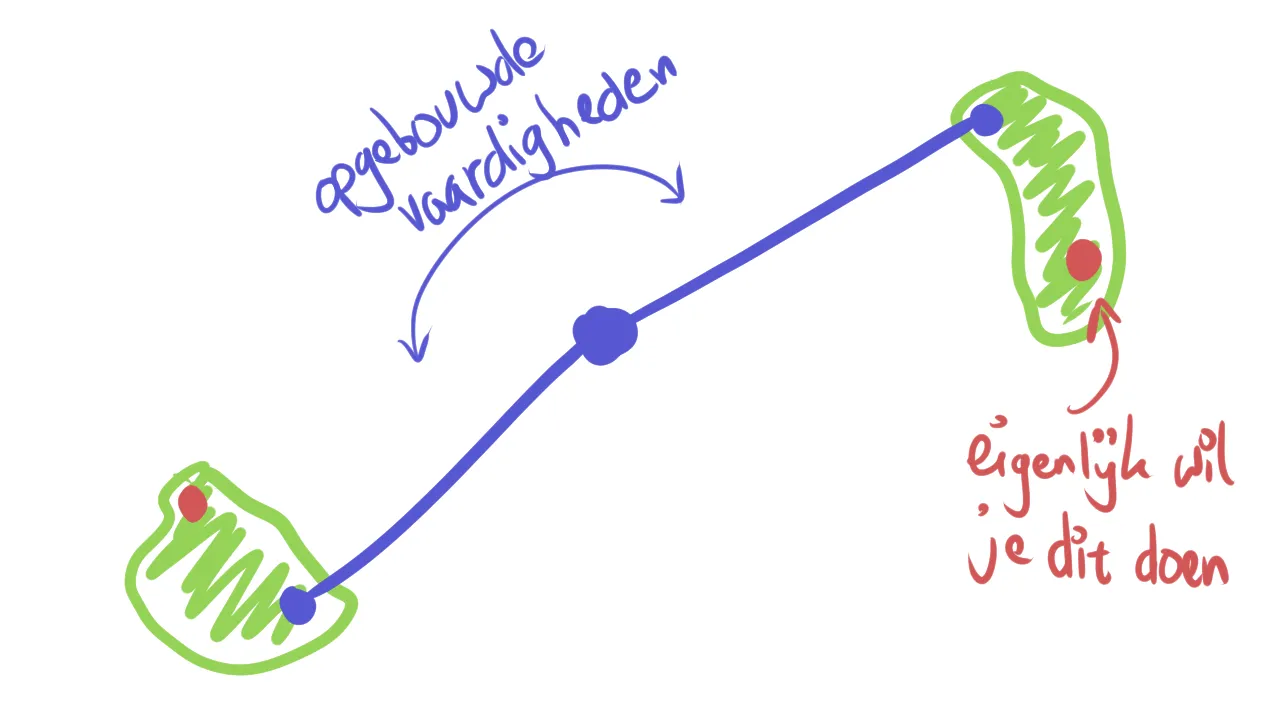 opgebouwde
vaardigheden
eigenlijk wil
je dit doen